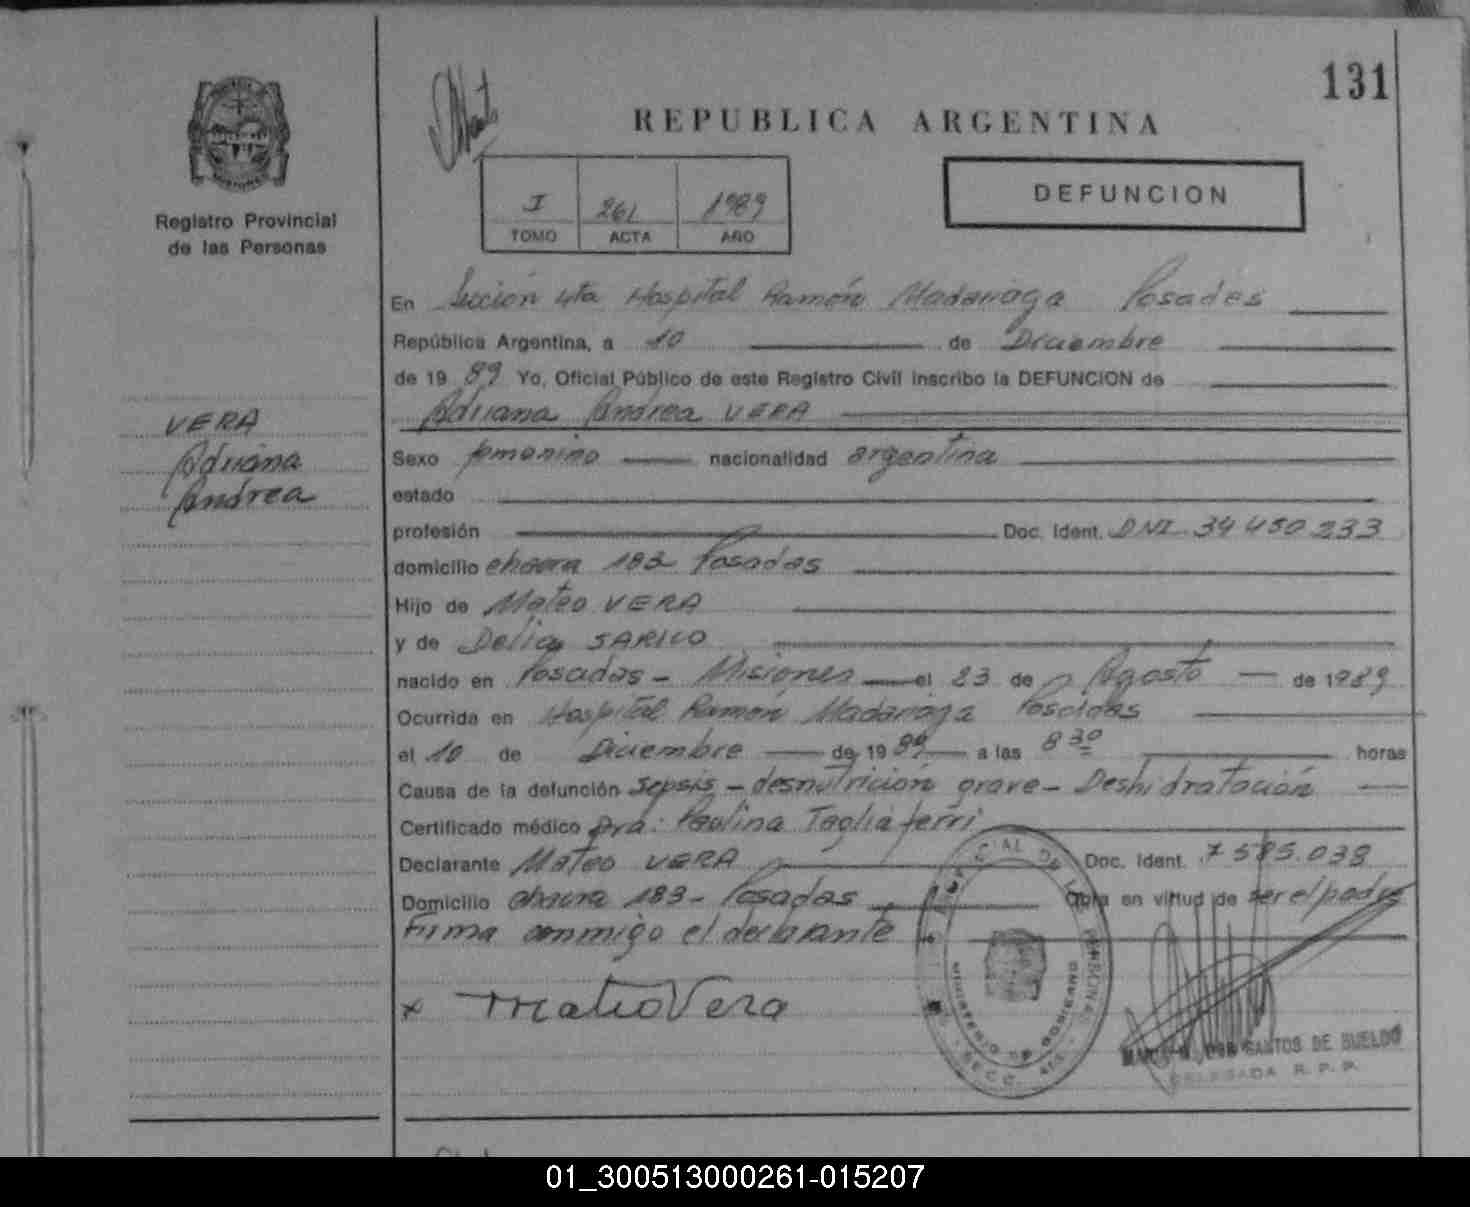 131
REPUBLICA ARGENTINA
Registro Provincial
de las Personas
I 261 1989
TOMO ACTA AÑO
DEFUNCION
En Sección 4ta Hospital Ramón Madariaga Posadas
República Argentina, a 10 de Diciembre
de 19 89 Yo, Oficial Público de este Registro Civil inscribo la DEFUNCION de
Adriana Andrea VERA
VERA
Adriana
Andrea
Sexo femenino nacionalidad argentina
estado
profesión Doc. Ident. DNI 34 450 233
domicilio chacra 183 Posadas
Hijo de Mateo VERA
y de Delia
nacido en Posadas - Misiones el 23 de Agosto de 1989
Ocurrida en Hospital Ramón Madariaga Posadas
el 10 de Diciembre de 1989 a las 8 30 horas
Causa de la defunción sepsis - desnutrición grave - Deshidratación
Certificado médico Dra. Paulina Tagliaferri
Declarante Mateo VERA Doc. Ident. 7 585.038
Domicilio chacra 183 - Posadas Obra en virtud de ser el padre
Firma conmigo el declarante
x Mateo Vera
MINISTERIO DE GOBIERNO
DOS SANTOS DE BUELDO
DELEGADA R. P. P.
01_300513000261-015207